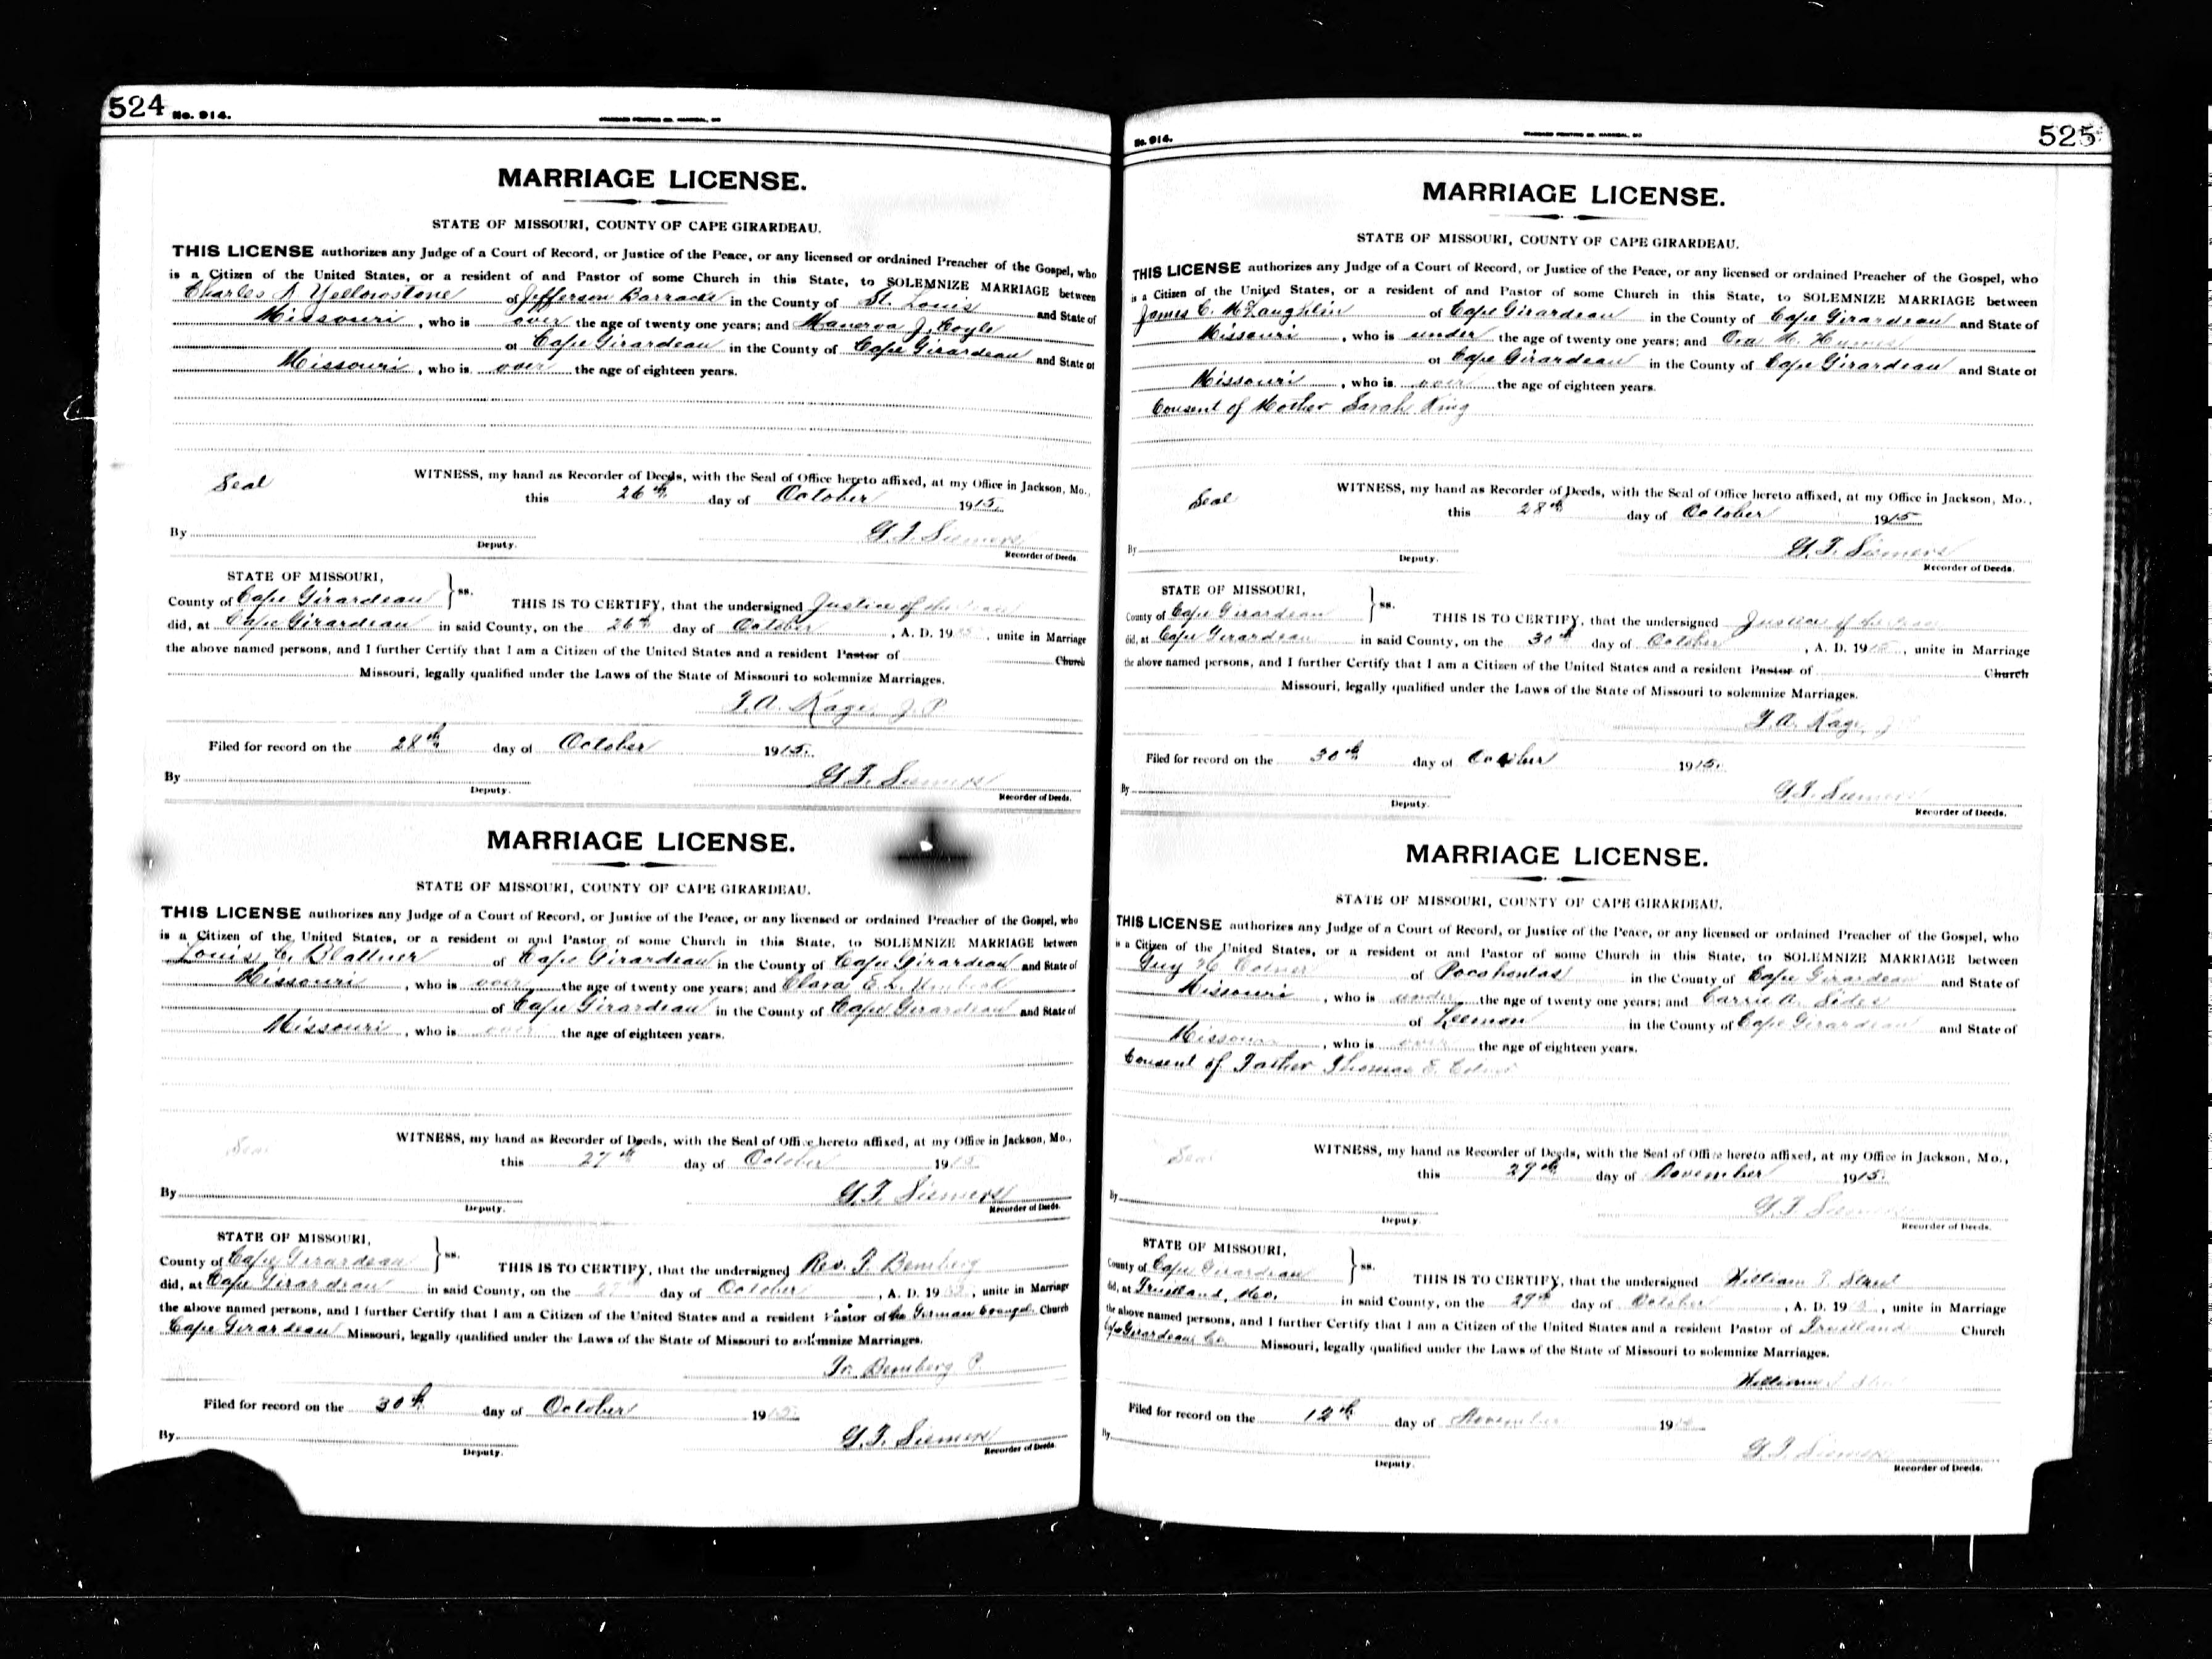 524 No. 914.
STANDARD PRINTING CO. HANNIBAL, MO
MARRIAGE LICENSE.
STATE OF MISSOURI, COUNTY OF CAPE GIRARDEAU.
THIS LICENSE authorizes any Judge of a Court of Record, or Justice of the Peace, or any licensed or ordained Preacher of the Gospel, who
is a Citizen of the United States, or a resident of and Pastor of some Church in this State, to SOLEMNIZE MARRIAGE between
Charles Yellowstone of Jefferson Barracks in the County of St. Louis and State of
Missouri, who is over the age of twenty one years; and Manerva J. Coyle
of Cape Girardeau in the County of Cape Girardeau and State of
Missouri, who is over the age of eighteen years.
Seal WITNESS, my hand as Recorder of Deeds, with the Seal of Office hereto affixed, at my Office in Jackson, Mo.,
this 26th day of October 1915.
By G. T. Siemers
Deputy. Recorder of Deeds.
STATE OF MISSOURI,
County of Cape Girardeau } ss. THIS IS TO CERTIFY, that the undersigned Justice of the
did, at Cape Girardeau in said County, on the 26th day of October, A. D. 1915, unite in Marriage
the above named persons, and I further Certify that I am a Citizen of the United States and a resident Pastor of Church
Missouri, legally qualified under the Laws of the State of Missouri to solemnize Marriages.
T. A. Kage J. P
Filed for record on the 28th day of October 1915.
By G. T. Siemers
Deputy. Recorder of Deeds.
MARRIAGE LICENSE.
STATE OF MISSOURI, COUNTY OF CAPE GIRARDEAU.
THIS LICENSE authorizes any Judge of a Court of Record, or Justice of the Peace, or any licensed or ordained Preacher of the Gospel, who
is a Citizen of the United States, or a resident of and Pastor of some Church in this State, to SOLEMNIZE MARRIAGE between
Louis C. Blattner of Cape Girardeau in the County of Cape Girardeau and State of
Missouri, who is over the age of twenty one years; and Clara E. L.
of Cape Girardeau in the County of Cape Girardeau and State of
Missouri, who is over the age of eighteen years.
Seal WITNESS, my hand as Recorder of Deeds, with the Seal of Office hereto affixed, at my Office in Jackson, Mo.,
this 27th day of October 1915
By G. T. Siemers
Deputy. Recorder of Deeds.
STATE OF MISSOURI,
County of Cape Girardeau } ss. THIS IS TO CERTIFY, that the undersigned Rev. F. Bemberg
did, at Cape Girardeau in said County, on the day of October, A. D. 19, unite in Marriage
the above named persons, and I further Certify that I am a Citizen of the United States and a resident Pastor of the German Evangel. Church
Cape Girardeau Missouri, legally qualified under the Laws of the State of Missouri to solemnize Marriages.
Fr. Bemberg P.
Filed for record on the 30th day of October 1915
By G. T. Siemers
Deputy. Recorder of Deeds.
No. 914. 525
STANDARD PRINTING CO. HANNIBAL, MO
MARRIAGE LICENSE.
STATE OF MISSOURI, COUNTY OF CAPE GIRARDEAU.
THIS LICENSE authorizes any Judge of a Court of Record, or Justice of the Peace, or any licensed or ordained Preacher of the Gospel, who
is a Citizen of the United States, or a resident of and Pastor of some Church in this State, to SOLEMNIZE MARRIAGE between
James C. McLaughlin of Cape Girardeau in the County of Cape Girardeau and State of
Missouri, who is under the age of twenty one years; and Ora M.
of Cape Girardeau in the County of Cape Girardeau and State of
Missouri, who is over the age of eighteen years.
Consent of Mother Sarah King
Seal WITNESS, my hand as Recorder of Deeds, with the Seal of Office hereto affixed, at my Office in Jackson, Mo.,
this 28th day of October 1915
By G. T. Siemers
Deputy. Recorder of Deeds.
STATE OF MISSOURI,
County of Cape Girardeau } ss. THIS IS TO CERTIFY, that the undersigned Justice of the
did, at Cape Girardeau in said County, on the 30th day of October, A. D. 1915, unite in Marriage
the above named persons, and I further Certify that I am a Citizen of the United States and a resident Pastor of Church
Missouri, legally qualified under the Laws of the State of Missouri to solemnize Marriages.
T. A. Kage J
Filed for record on the 30th day of October 1915.
By G. T. Siemers
Deputy. Recorder of Deeds.
MARRIAGE LICENSE.
STATE OF MISSOURI, COUNTY OF CAPE GIRARDEAU.
THIS LICENSE authorizes any Judge of a Court of Record, or Justice of the Peace, or any licensed or ordained Preacher of the Gospel, who
is a Citizen of the United States, or a resident of and Pastor of some Church in this State, to SOLEMNIZE MARRIAGE between
Guy of Pocahontas in the County of Cape Girardeau and State of
Missouri, who is under the age of twenty one years; and Carrie A. Sides
of Leemon in the County of Cape Girardeau and State of
Missouri, who is over the age of eighteen years.
Consent of Father Thomas E.
Seal WITNESS, my hand as Recorder of Deeds, with the Seal of Office hereto affixed, at my Office in Jackson, Mo.,
this 29th day of November 1915.
By G. T. Siemers
Deputy. Recorder of Deeds.
STATE OF MISSOURI,
County of Cape Girardeau } ss. THIS IS TO CERTIFY, that the undersigned William
did, at Fruitland, Mo. in said County, on the 29th day of October, A. D. 19, unite in Marriage
the above named persons, and I further Certify that I am a Citizen of the United States and a resident Pastor of Fruitland Church
Cape Girardeau Co. Missouri, legally qualified under the Laws of the State of Missouri to solemnize Marriages.
William
Filed for record on the 12th day of November 19
By G. T. Siemers
Deputy. Recorder of Deeds.